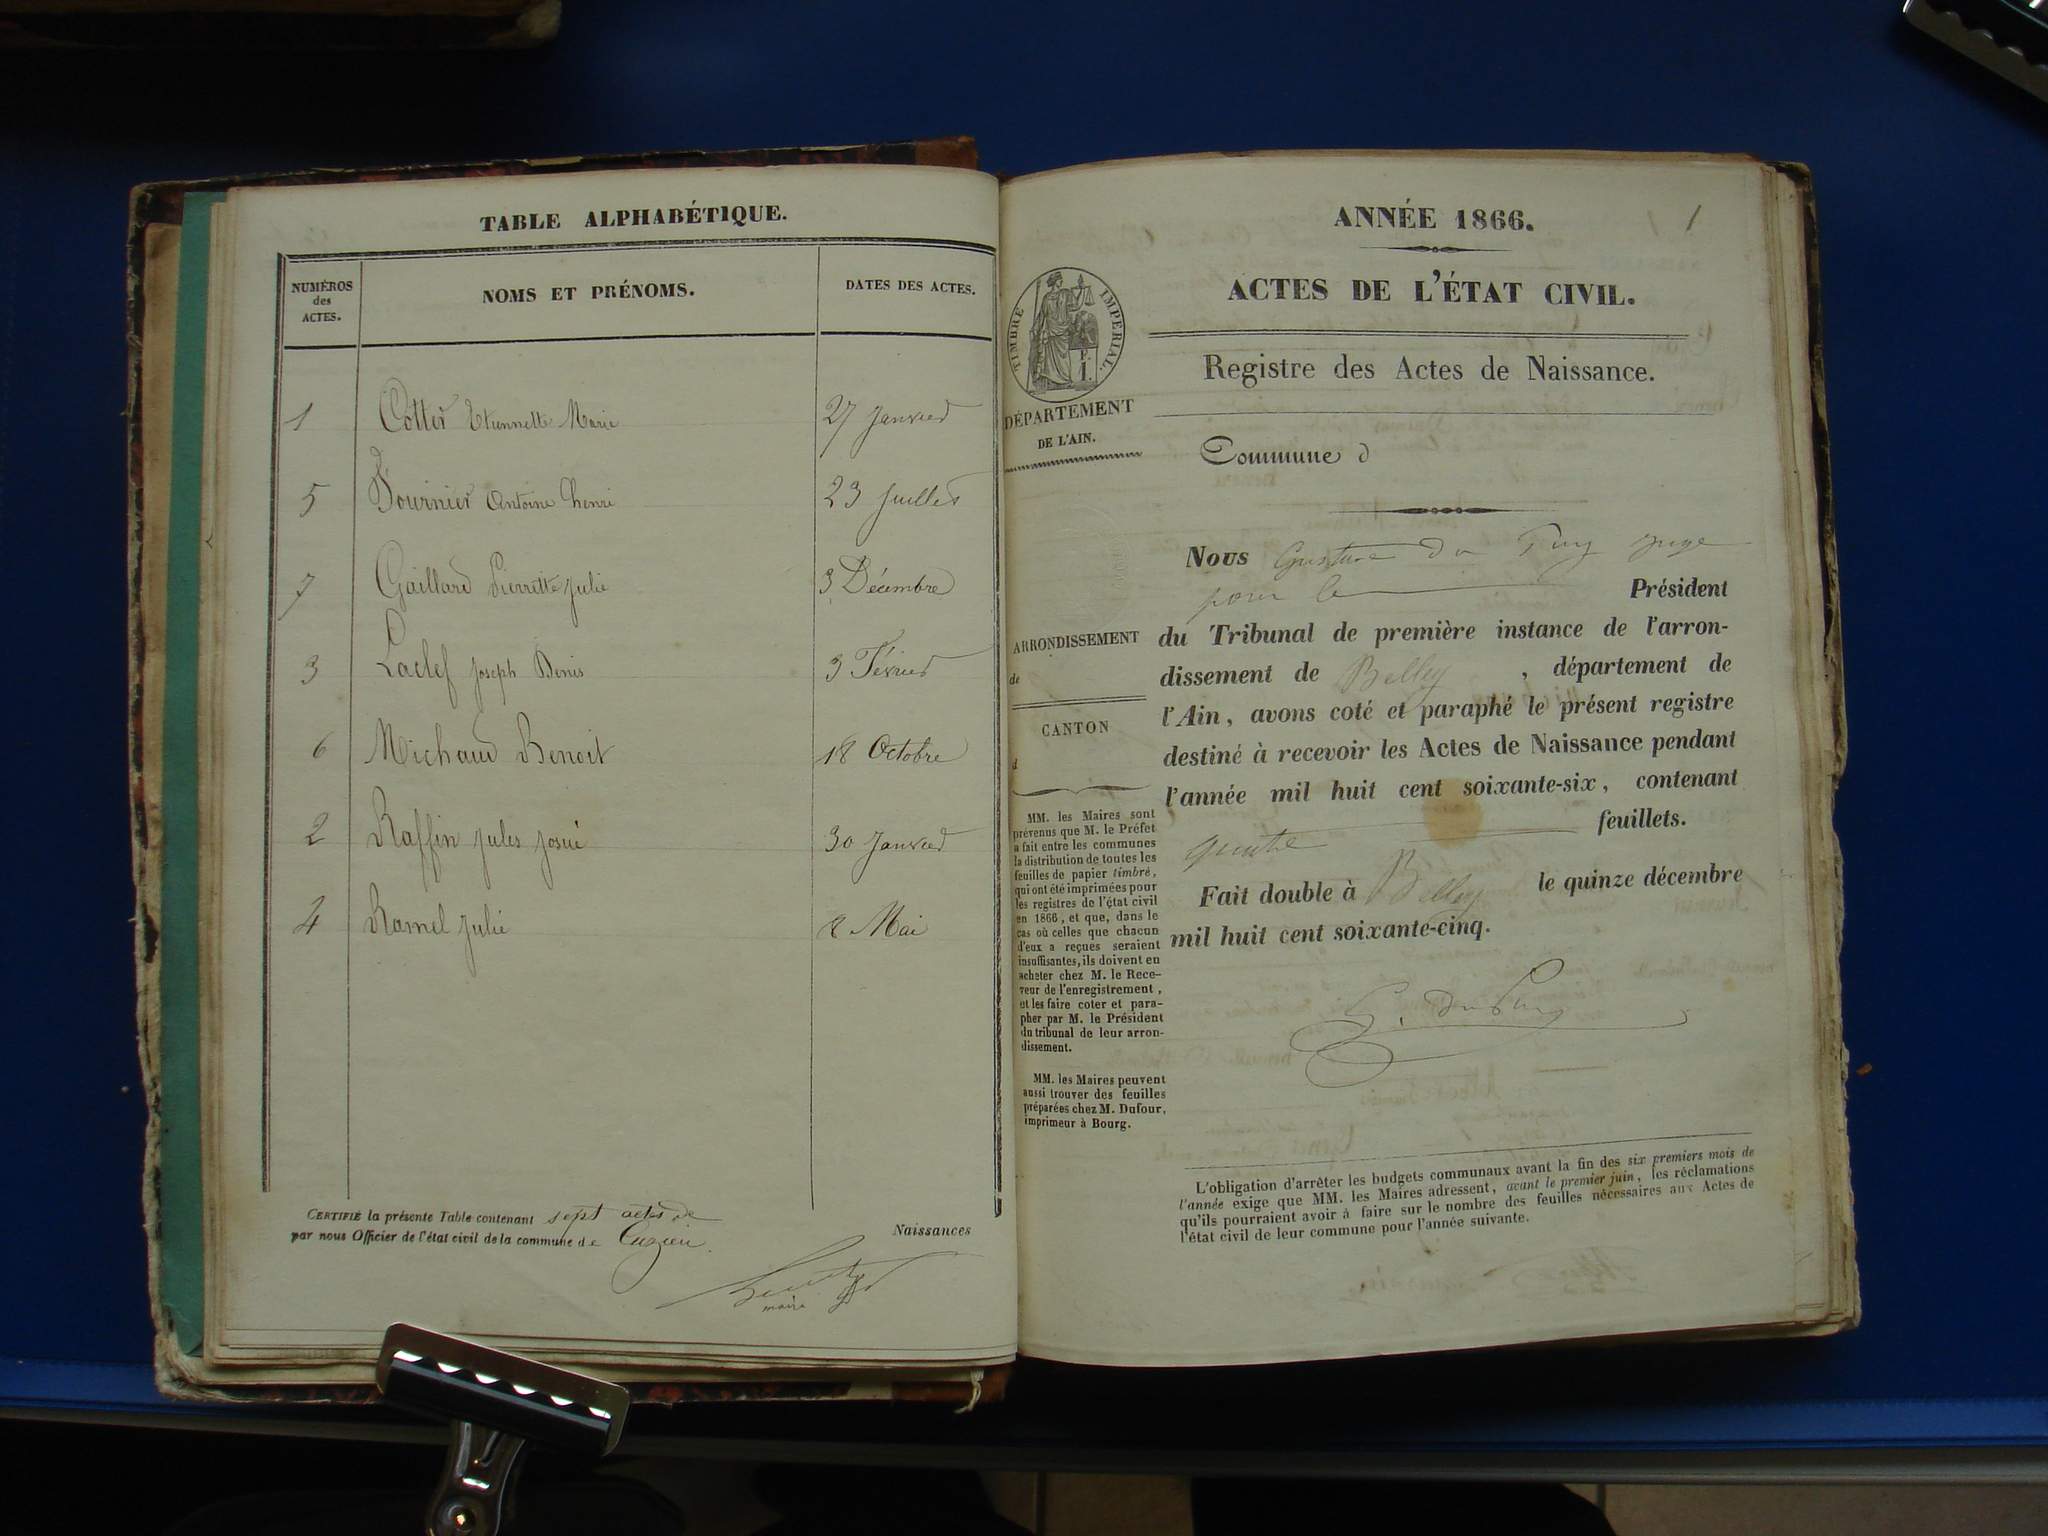 TABLE ALPHABÉTIQUE.
NUMÉROS
des
ACTES.
NOMS ET PRÉNOMS.
DATES DES ACTES.
1 Cottin Etiennette Marie 27 Janvier
5 Fournier Antoine henri 23 Juillet
7 Gaillard Pierrette Julie 3 Décembre
3 Laclef Joseph Denis 3 Février
6 Michaud Benoit 18 Octobre
2 Raffin Jules Josué 30 Janvier
4 Ramel Julie 8 Mai
CERTIFIÉ la présente Table contenant sept actes de Naissances
par nous Officier de l'état civil de la commune de Cuzieu
maire
ANNÉE 1866.
1
ACTES DE L'ÉTAT CIVIL.
Registre des Actes de Naissance.
TIMBRE IMPÉRIAL.
DÉPARTEMENT
DE L'AIN.
Commune d
Nous Gustave du Puy juge
pour le Président
du Tribunal de première instance de l'arron-
dissement de Belley, département de
l'Ain, avons coté et paraphé le présent registre
destiné à recevoir les Actes de Naissance pendant
l'année mil huit cent soixante-six, contenant
quatre feuillets.
Fait double à Belley le quinze décembre
mil huit cent soixante-cinq.
G. du Puy
ARRONDISSEMENT
de
CANTON
d
MM. les Maires sont
prévenus que M. le Préfet
a fait entre les communes
la distribution de toutes les
feuilles de papier timbré,
qui ont été imprimées pour
les registres de l'état civil
en 1866, et que, dans le
cas où celles que chacun
d'eux a reçues seraient
insuffisantes, ils doivent en
acheter chez M. le Rece-
veur de l'enregistrement,
et les faire coter et para-
pher par M. le Président
du tribunal de leur arron-
dissement.
MM. les Maires peuvent
aussi trouver des feuilles
préparées chez M. Dufour,
imprimeur à Bourg.
L'obligation d'arrêter les budgets communaux avant la fin des six premiers mois de
l'année exige que MM. les Maires adressent, avant le premier juin, les réclamations
qu'ils pourraient avoir à faire sur le nombre des feuilles nécessaires aux Actes de
l'état civil de leur commune pour l'année suivante.